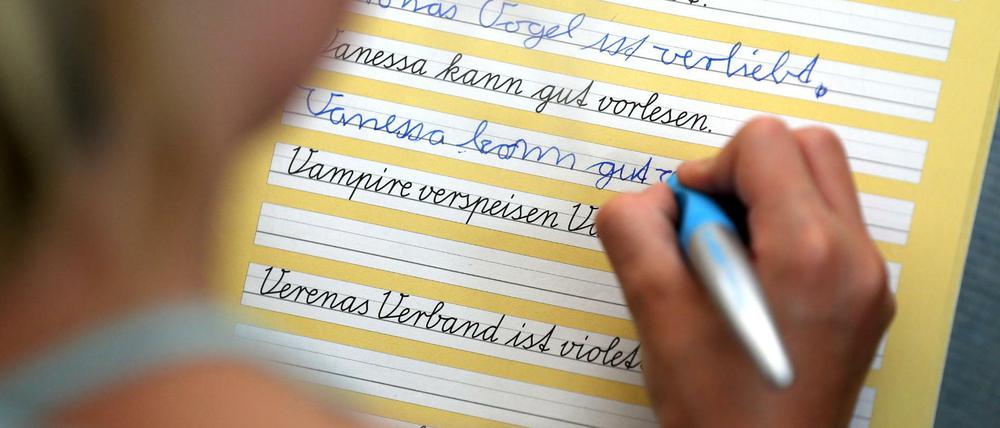 Vogel ist verliebt.
Vanessa kann gut vorlesen.
Vanessa kann gut
Vampire verspeisen
Verenas Verband ist violett